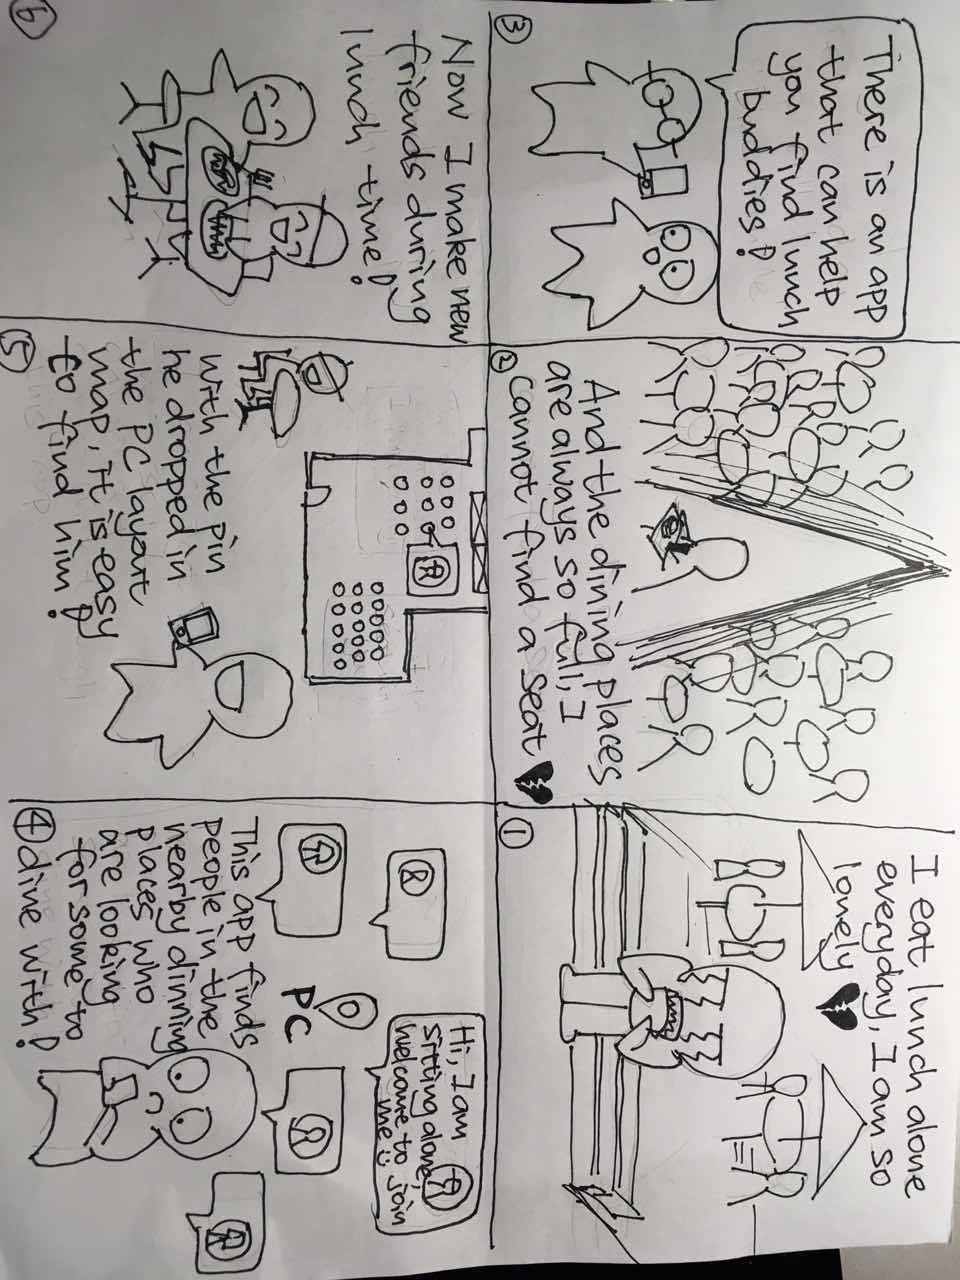 ①
I eat lunch alone
everyday, I am so
lonely
②
And the dining places
are always so full, I
cannot find a seat
③
There is an app
that can help
you find lunch
buddies!
④
Hi, I am
sitting alone,
welcome to join
me
PC
This app finds
people in the
nearby dinning
places who
are looking
for some to
dine with!
⑤
with the pin
he dropped in
the PC layout
map, it is easy
to find him!
⑥
Now I make new
friends during
lunch time!